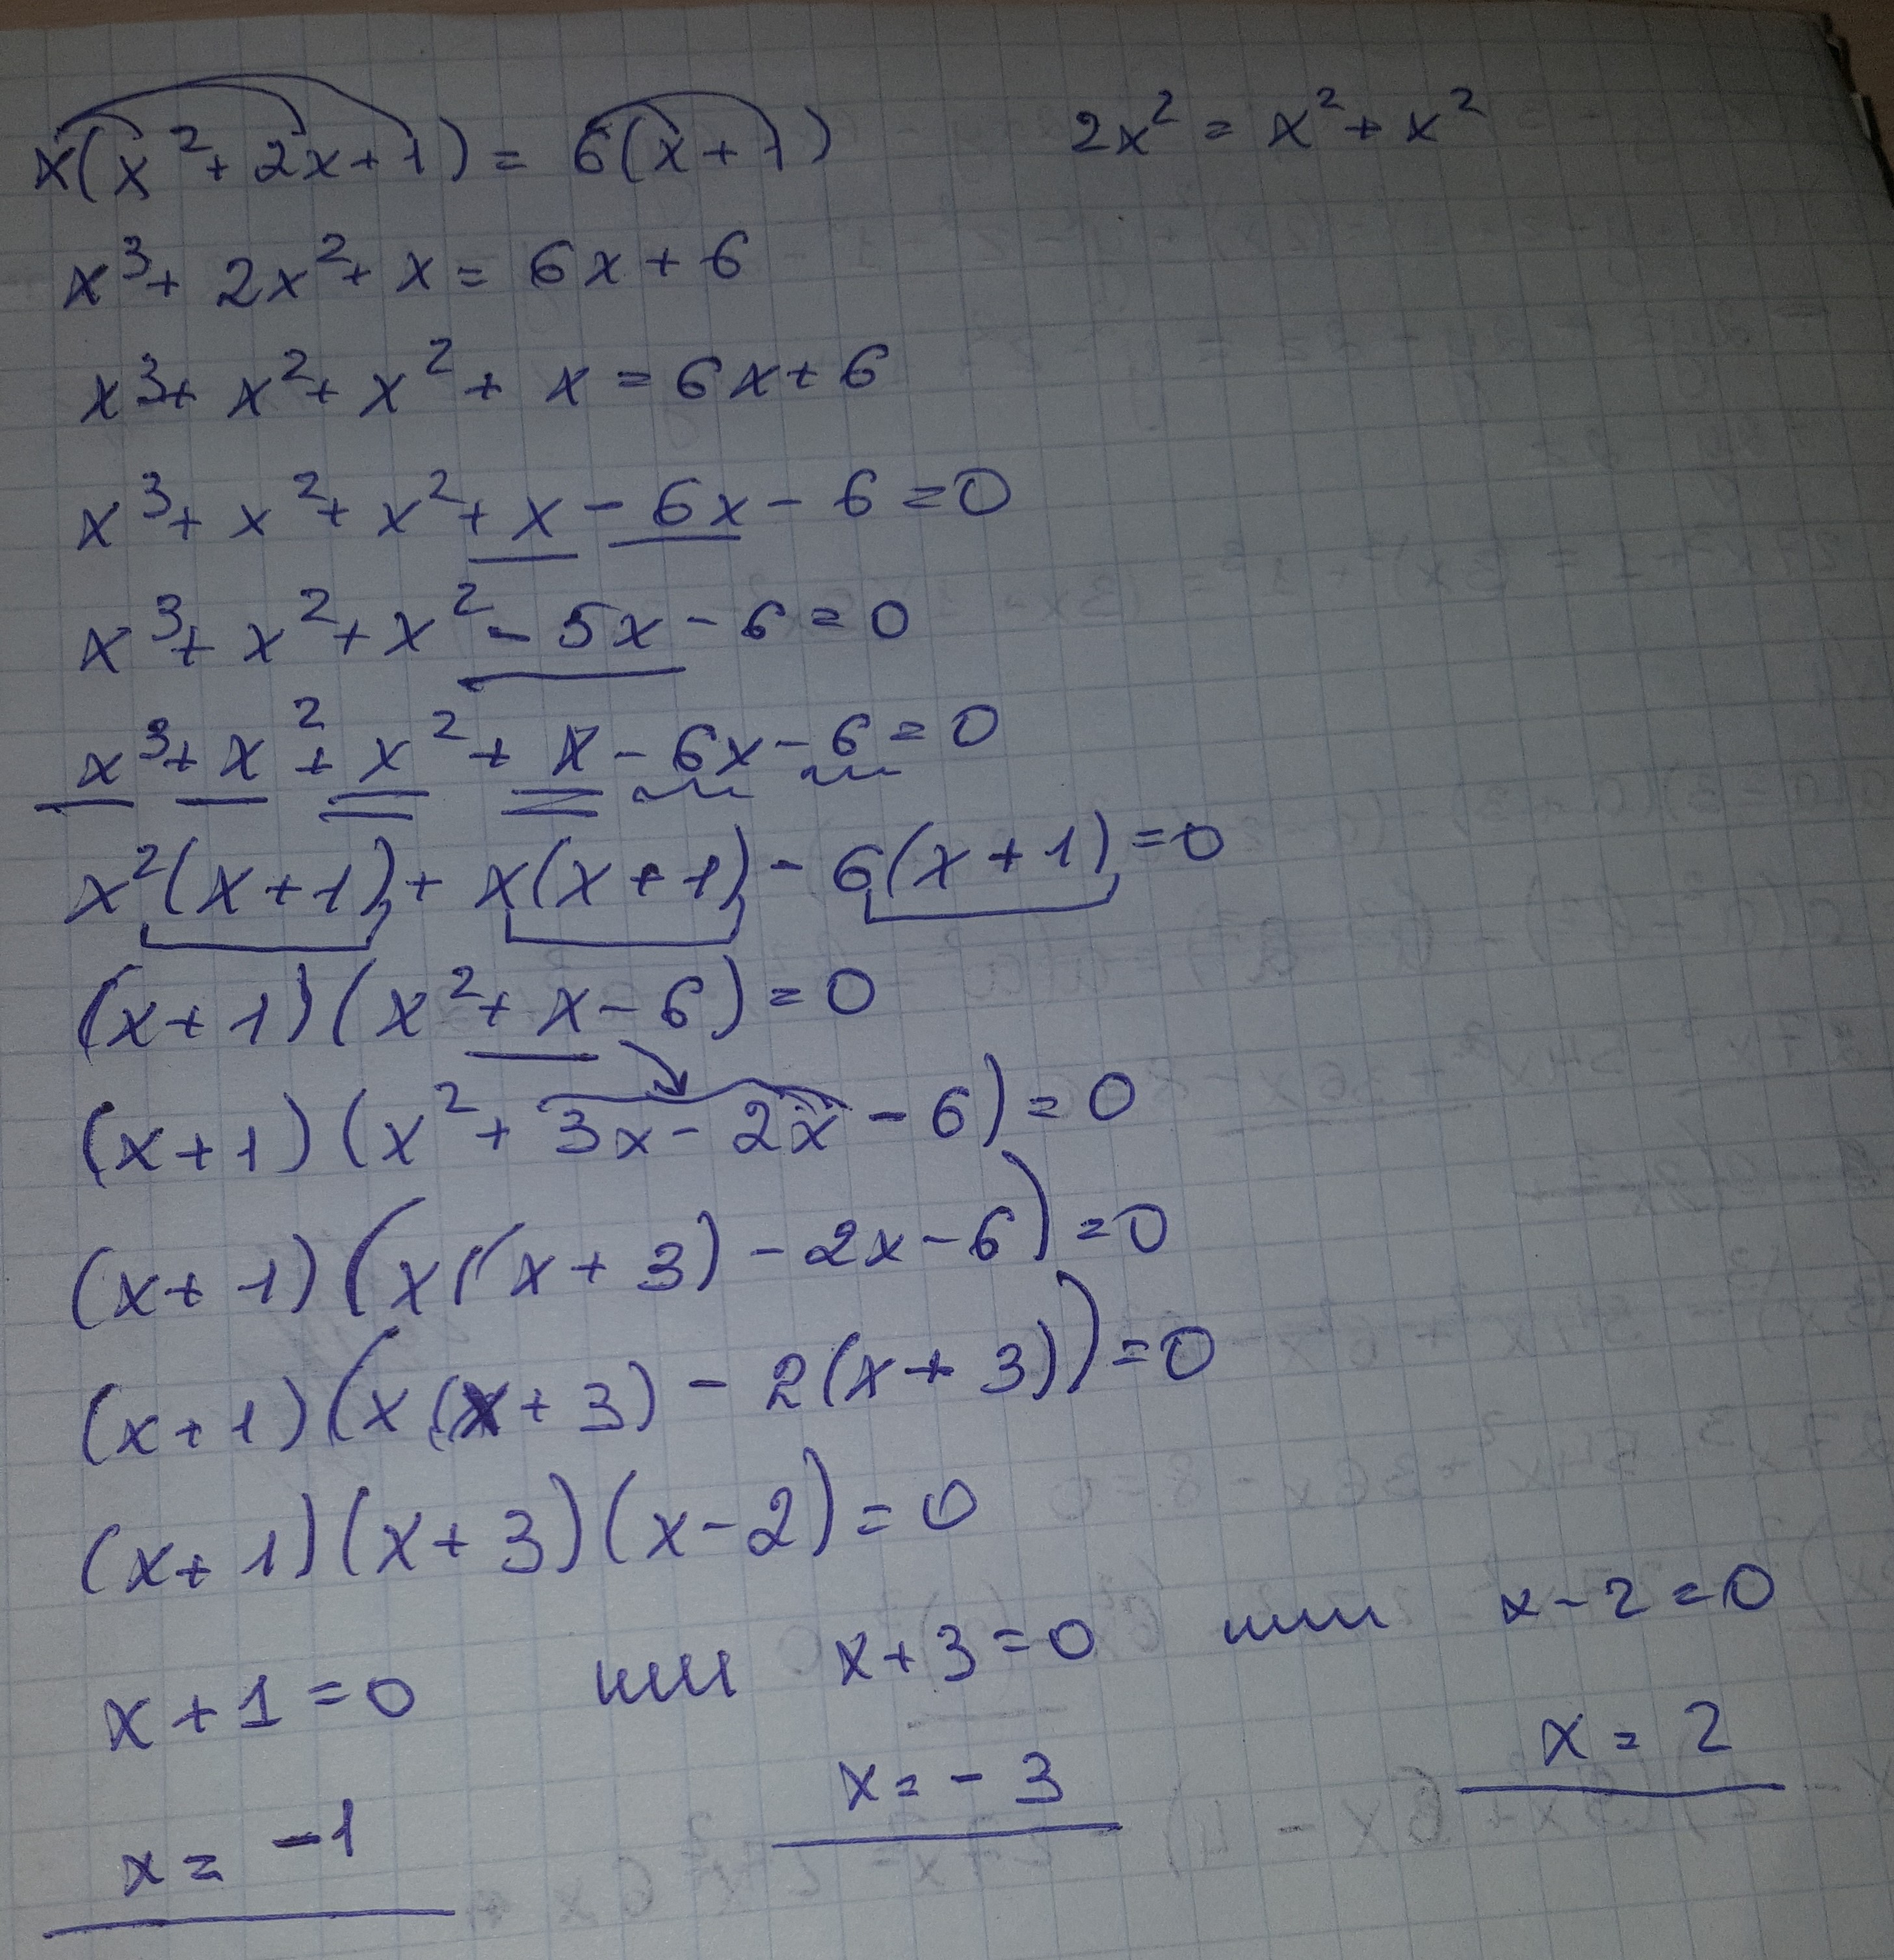 x(x²+2x+1)=6(x+1) 2x²=x²+x²
x³+2x²+x=6x+6
x³+x²+x²+x=6x+6
x³+x²+x²+x-6x-6=0
x³+x²+x²-5x-6=0
x³+x²+x²+x-6x-6=0
x²(x+1)+x(x+1)-6(x+1)=0
(x+1)(x²+x-6)=0
(x+1)(x²+3x-2x-6)=0
(x+1)(x(x+3)-2x-6)=0
(x+1)(x(x+3)-2(x+3))=0
(x+1)(x+3)(x-2)=0
x+1=0 или x+3=0 или x-2=0
x=-1 x=-3 x=2